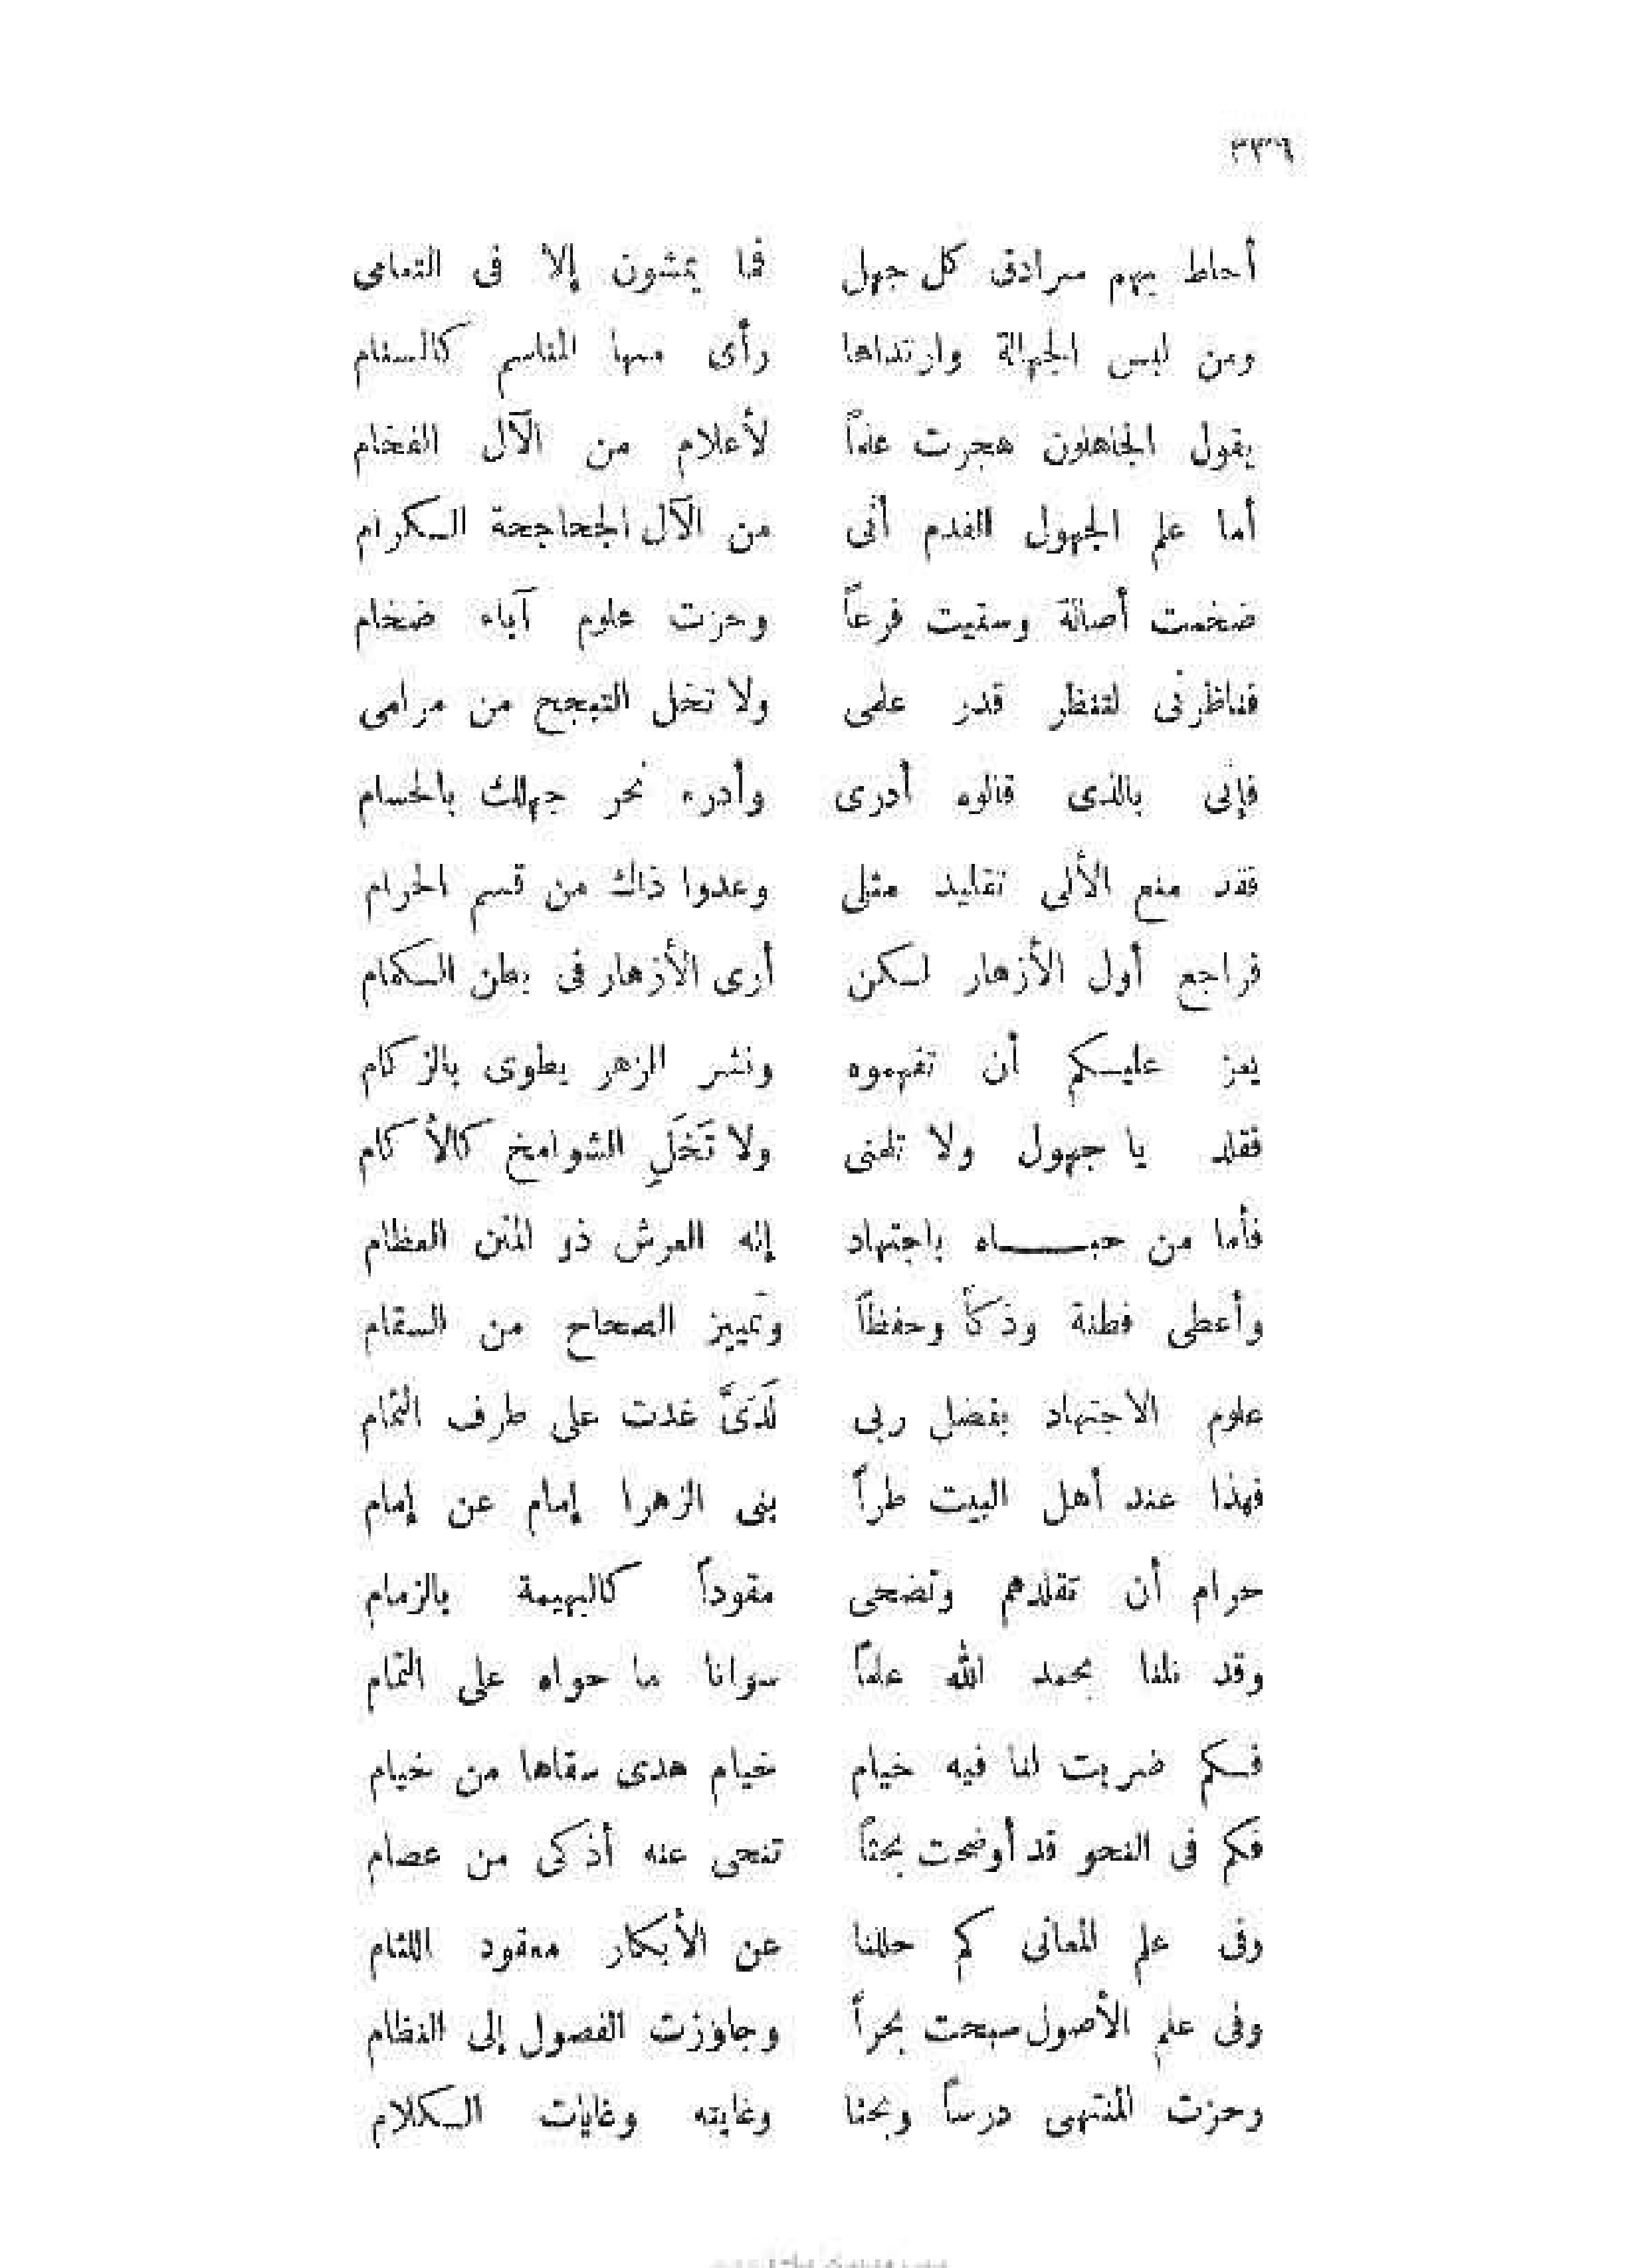 ٣٣٦
أحاط بهم سرادق كل جهل فما يمشون إلا فى التعامى
ومن لبس الجهالة وارتداها رأى منها المناسم كالسنام
يقول الجاهلون هجرت علماً لأعلام من الآل الفخام
أما علم الجهول الفدم أنى من الآل الجحاجحة الكرام
ضخمت أصالة وسقيت فرعاً وحزت علوم آباء ضخام
فناظرنى لتنظر قدر علمى ولا تخل التبجح من مرامى
فإنى بالذى قالوه أدرى وأدرء نحر جهلك بالحسام
فقد منع الألى تقليد مثلى وعدوا ذاك من قسم الحرام
فراجع أول الأزهار لكن أرى الأزهار فى بطن الكمام
يعز عليكم أن تفهموه ونشر الزهر يطوى بالزكام
فقلد يا جهول ولا تلمنى ولا تَخَلِ الشوامخ كالأكام
فأما من حبـاه باجتهاد إله العرش ذو المنن العظام
وأعطى فطنة وذكاً وحفظاً وتمييز الصحاح من السقام
علوم الاجتهاد بفضل ربى لَدَىَّ غدت على طرف الثمام
فهذا عند أهل البيت طراً بنى الزهرا إمام عن إمام
حرام أن تقلدهم وتضحى مقوداً كالبهيمة بالزمام
وقد نلنا بحمد الله علماً سوانا ما حواه على التمام
فكم ضربت لنا فيه خيام خيام هدى سقاها من خيام
فكم فى النحو قد أوضحت بحثاً تنحى عنه أذكى من عصام
وفى علم المعانى كم حللنا عن الأبكار معقود اللثام
وفى علم الأصول سبحت بحراً وجاوزت الفصول إلى النظام
وحزت المنتهى درساً وبحثا وغايته وغايات الكلام